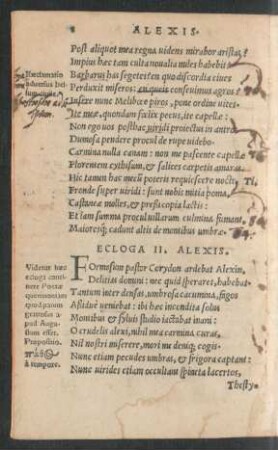 8 ALEXIS.
Post aliquot mea regna uidens mirabor aristas?
Impius hæc tam culta noualia miles habebit?
Barbarus has segetes? en quò discordia ciueis
Perduxit miseros: en queis conseuimus agros?
Insere nunc Melibœe piros, pone ordine viteis.
Ite meæ, quondam fœlix pecus, ite capellæ:
Non ego uos posthac uiridi proiectus in antro
Dumosa pendere procul de rupe uidebo.
Carmina nulla canam: non me pascente capellæ
Florentem cytisum, & salices carpetis amaras.
Hic tamen hac mecū poteris requiescere nocte Ti.
Fronde super uiridi: sunt nobis mitia poma,
Castaneæ molles, & pressi copia lactis:
Et iam summa procul uillarum culmina fumant,
Maioresq; cadunt altis de montibus umbræ.
ECLOGA II. ALEXIS.
Videtur hæc
ecloga conti-
nere Poetæ
quod
gratiosus a-
pud Augu-
stum esset.
Propositio.
à tempore.
Formosum pastor Corydon ardebat Alexin,
Delitias domini: nec quid speraret, habebat.
Tantum inter densas, umbrosa cacumina, fagos
Assiduè ueniebat: ibi hæc incondita solus
Montibus & syluis studio iactabat inani:
O crudelis alexi, nihil mea carmina curas,
Nil nostri miserere, mori me deniq; cogis.
Nunc etiam pecudes umbras, & frigora captant:
Nunc uirides etiam occultant spineta lacertos,
Thesty-